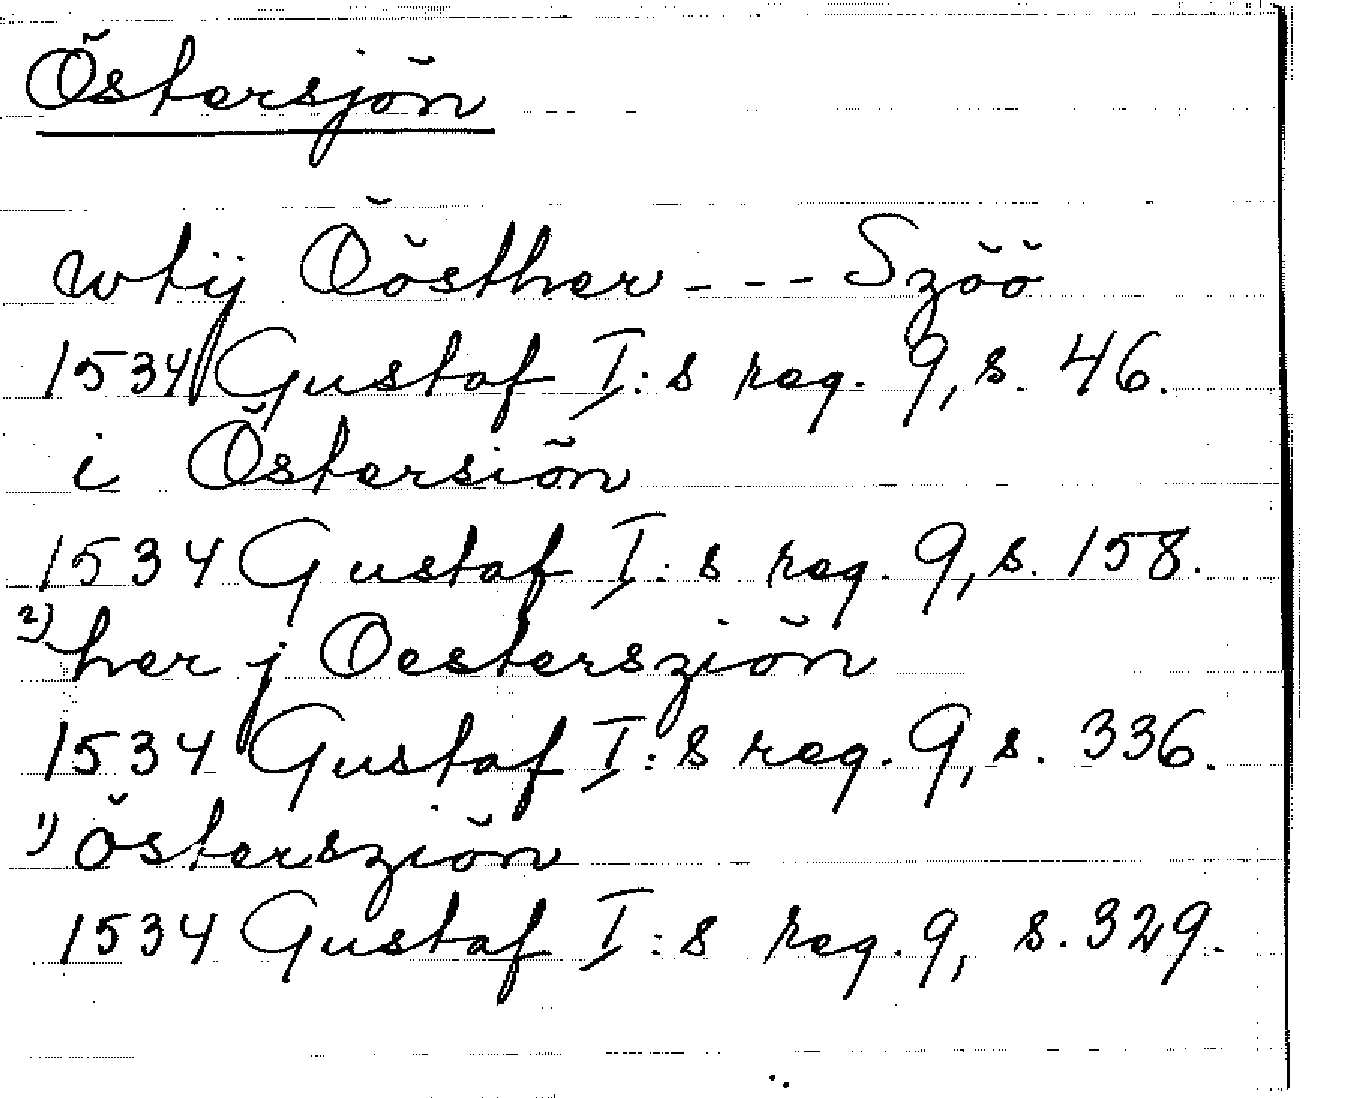 Östersjön
wtij Öösther - - - Szöö
1534 Gustaf I:s reg. 9, s. 46.
i Östersiön
1534 Gustaf I:s reg. 9, s. 158.
2) her j Oestersziön
1534 Gustaf I:s reg. 9, s. 336.
1) östersziön
1534 Gustaf I:s reg. 9, s. 329.